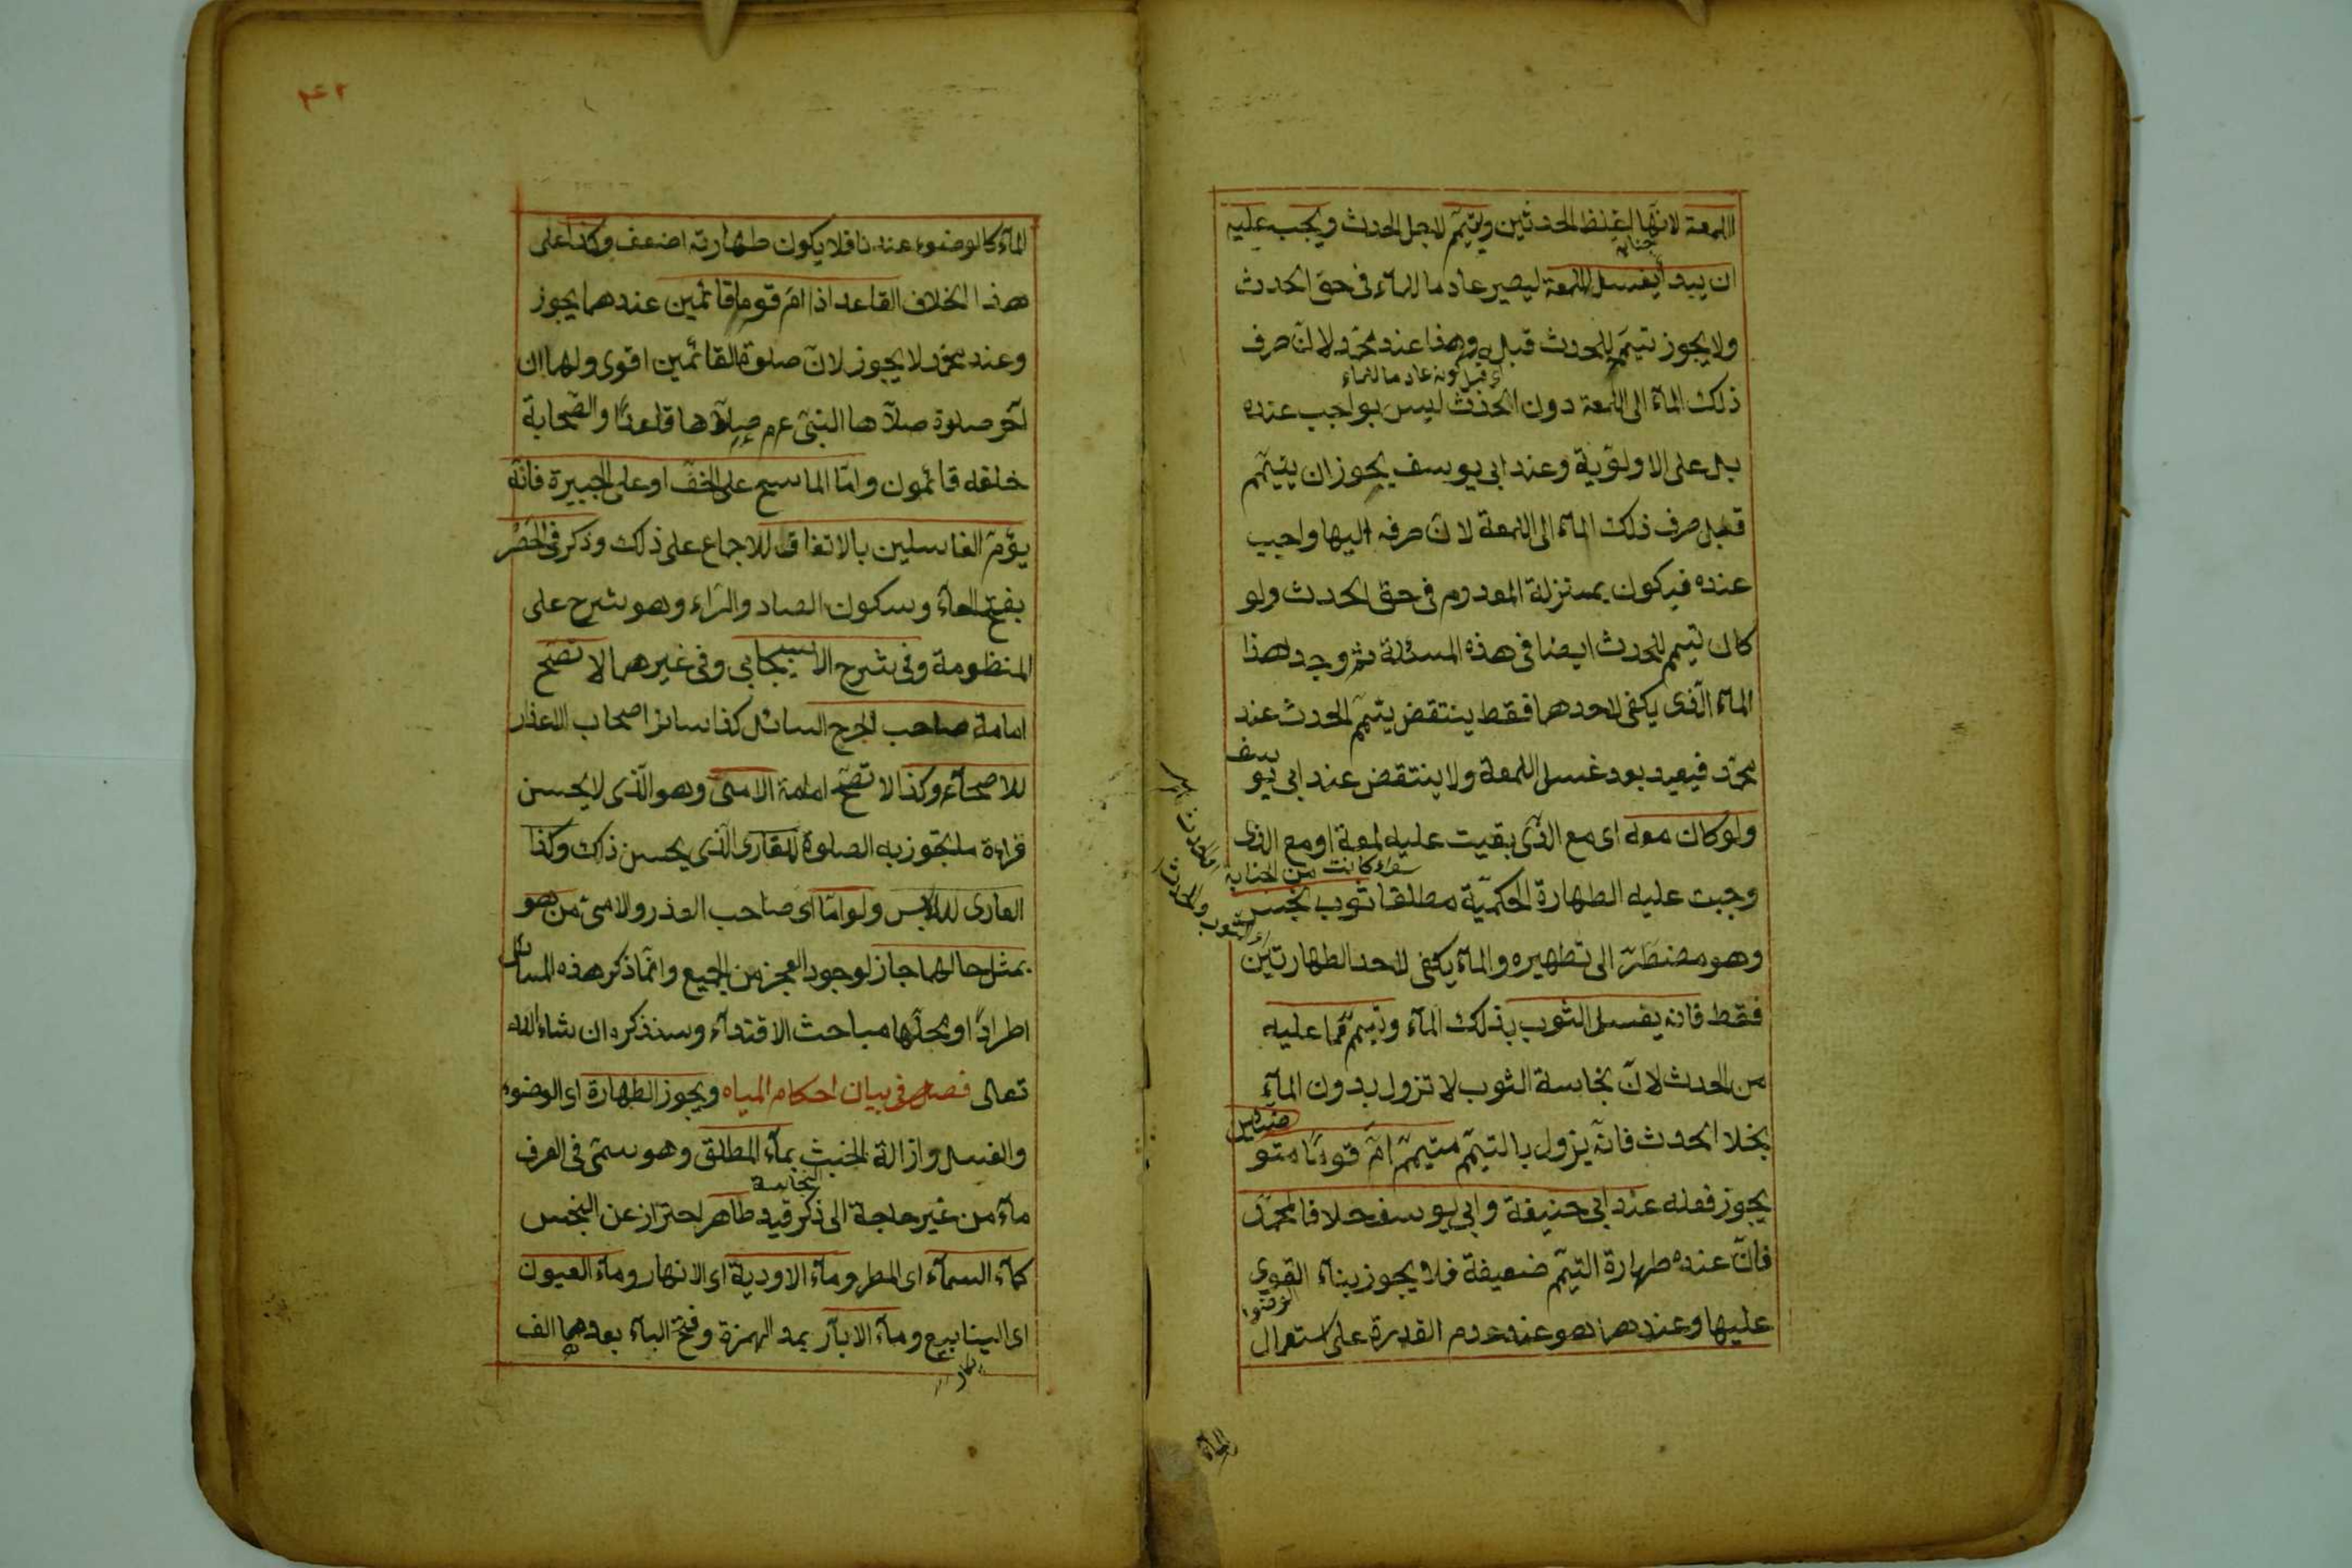 اللمعة لانها اغلظ الحدثين ويتيمم لاجل الحدث ويجب عليه
جنابة
ان يبدأ بغسل اللمعة ليصير عادما للماء فى حق الحدث
ولا يجوز تيممه للحدث قبله وهذا عند محمد لا لان صرف
اى قبل كونه عادما للماء
ذلك الماء الى اللمعة دون الحدث ليس بواجب عنده
بل على الاولوية وعند ابى يوسف يجوز ان يتيمم
قبل صرف ذلك الماء الى اللمعة لان صرفه اليها واجب
عنده فيكون بمنزلة المعدوم فى حق الحدث ولو
كان تيمم للحدث ايضا فى هذه المسئلة ثم وجد هذا
الماء الذى يكفى لاحدهما فقط ينتقض تيمم الحدث عند
محمد فيعيد بعد غسل اللمعة ولا ينتقض عند ابى يوسف
ولو كان معه اى مع الذى بقيت عليه لمعة او مع الذى
سواء كانت من الجنابة
وجبت عليه الطهارة الحكمية مطلقا ثوب نجس
وهو مضطر الى تطهيره والماء يكفى لاحد الطهارتين
فقط فانه يغسل الثوب بذلك الماء وتيمم مما عليه
من الحدث لان نجاسة الثوب لا تزول بدون الماء
بخلاف الحدث فانه يزول بالتيمم متيمم ام قوما متوضئين
يجوز فعله عند ابى حنيفة وابى يوسف خلافا لمحمد
فان عنده طهارة التيمم ضعيفة فلا يجوز بناء القوى
الوضوء
عليها وعندهما هو عند عدم القدرة على استعمال
الماء
٢٤٢
الماء كالوضوء عندنا فلا يكون طهارته اضعف وكذا على
هذا الخلاف القاعد اذا ام قوما قائمين عندهما يجوز
وعند محمد لا يجوز لان صلوة القائمين اقوى ولهما ان
آخر صلوة صلاها النبى عم صلاها قاعدا والصحابة
خلفه قائمون واما الماسح على الخف او على الجبيرة فانه
يؤم الغاسلين بالاتفاق للاجماع على ذلك وذكر فى الحصر
بفتح الحاء وسكون الصاد والراء وهو شرح على
المنظومة وفى شرح الاسبيجابى وفى غيرهما لا تصح
امامة صاحب الجرح السائل كذا سائر اصحاب الاعذار
للاصحاء وكذا لا تصح امامة الامى وهو الذى لا يحسن
قراءة ما يجوز به الصلوة للقارى الذى يحسن ذلك وكذا
العارى للابس ولو اما اى صاحب العذر والامى من هو
بمثل حالهما جاز لوجود العجز من الجميع وانما ذكر هذه المسائل
اطرادا ومحلها مباحث الاقتداء وسنذكره ان شاء الله
تعالى فصل فى بيان احكام المياه ويجوز الطهارة اى الوضوء
والغسل وازالة الخبث بماء المطلق وهو سمى فى العرف
النجاسة
ماء من غير حاجة الى ذكر قيد طاهر احتراز عن النجس
كماء السماء اى المطر وماء الاودية اى الانهار وماء العيون
اى الينابيع وماء الآبار بمد الهمزة وفتح الباء بعدهما الف